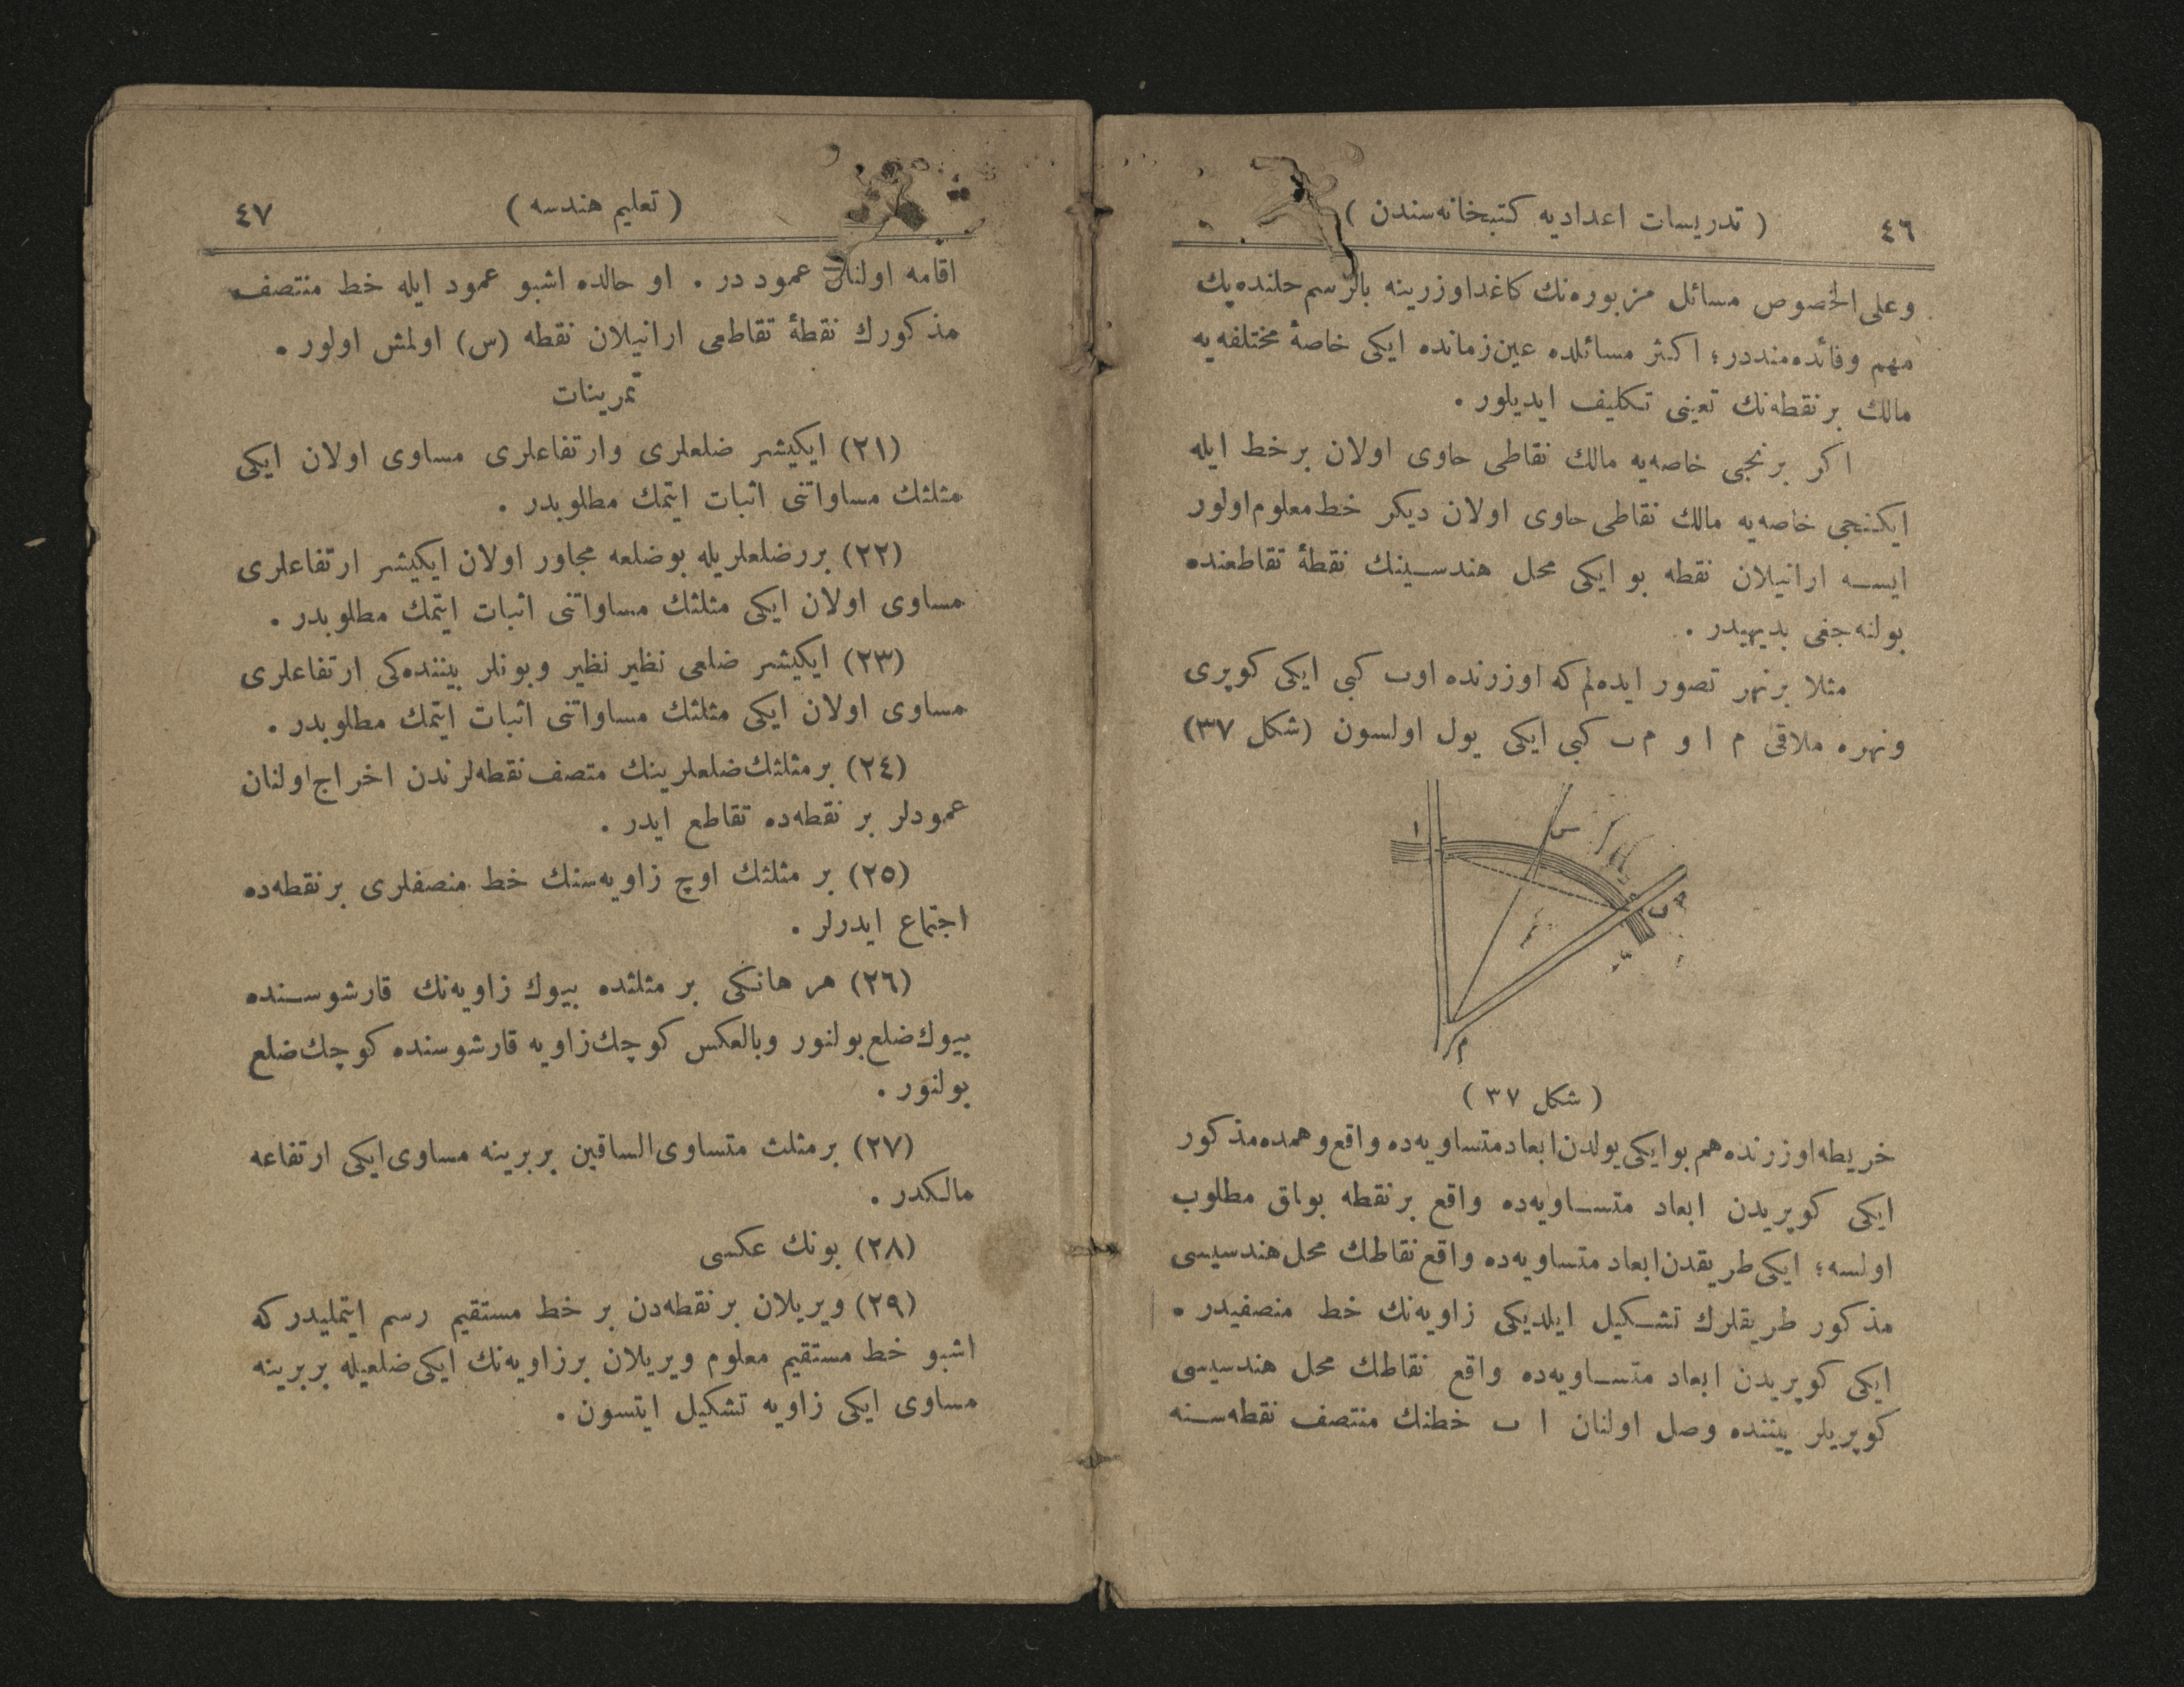 ٤٦
( تدریسات اعدادیه کتبخانه‌سندن )
وعلی الخصوص مسائل مزبوره‌نك کاغد اوزرینه بالرسم حلنده پك
مهم وفائده‌منددر ؛ اکثر مسائلده عین زمانده ایکی خاصهٔ مختلفه‌یه
مالك بر نقطه‌نك تعینی تکلیف ایدیلور .
اکر برنجی خاصه‌یه مالك نقاطی حاوی اولان برخط ایله
ایکنجی خاصه‌یه مالك نقاطی حاوی اولان دیکر خط معلوم اولور
ایسه ارانیلان نقطه بو ایکی محل هندسینك نقطهٔ تقاطعنده
بولنه‌جغی بدیهیدر .
مثلا برنهر تصور ایده‌لم که اوزرنده اوب کبی ایکی کوپری
ونهره ملاقی م ا و م ب کبی ایکی یول اولسون (شکل ٣٧)
ا
س
ب
م
( شکل ٣٧ )
خریطه اوزرنده هم بوایکی یولدن ابعاد متساویه‌ده واقع وهمده مذکور
ایکی کوپریدن ابعاد متساویه‌ده واقع برنقطه بولمق مطلوب
اولسه ؛ ایکی طریقدن ابعاد متساویه‌ده واقع نقاطك محل هندسیسی
مذکور طریقلرك تشکیل ایلدیکی زاویه‌نك خط منصفیدر .
ایکی کوپریدن ابعاد متساویه‌ده واقع نقاطك محل هندسیسی
کوپریلر بیننده وصل اولنان ا ب خطنك منتصف نقطه‌سنه
( تعلیم هندسه )
٤٧
اقامه اولنان عمود در . او حالده اشبو عمود ایله خط منتصف
مذکورك نقطهٔ تقاطعی ارانیلان نقطه (س) اولمش اولور .
تمرینات
(٢١) ایکیشر ضلعلری وارتفاعلری مساوی اولان ایکی
مثلثك مساواتنی اثبات ایتمك مطلوبدر .
(٢٢) بررضلعلریله بوضلعه مجاور اولان ایکیشر ارتفاعلری
مساوی اولان ایکی مثلثك مساواتنی اثبات ایتمك مطلوبدر .
(٢٣) ایکیشر ضلعی نظیر نظیر وبونلر بیننده‌کی ارتفاعلری
مساوی اولان ایکی مثلثك مساواتنی اثبات ایتمك مطلوبدر .
(٢٤) برمثلثك ضلعلرینك متصف نقطه‌لرندن اخراج اولنان
عمودلر بر نقطه‌ده تقاطع ایدر .
(٢٥) بر مثلثك اوچ زاویه‌سنك خط منصفلری برنقطه‌ده
اجتماع ایدرلر .
(٢٦) هر هانکی بر مثلثده بیوك زاویه‌نك قارشوسنده
بیوك ضلع بولنور وبالعکس کوچك زاویه قارشوسنده کوچك ضلع
بولنور .
(٢٧) برمثلث متساوی الساقین بربرینه مساوی ایکی ارتفاعه
مالکدر .
(٢٨) بونك عکسی
(٢٩) ویریلان برنقطه‌دن بر خط مستقیم رسم ایتملیدر که
اشبو خط مستقیم معلوم ویریلان برزاویه‌نك ایکی ضلعیله بربرینه
مساوی ایکی زاویه تشکیل ایتسون .